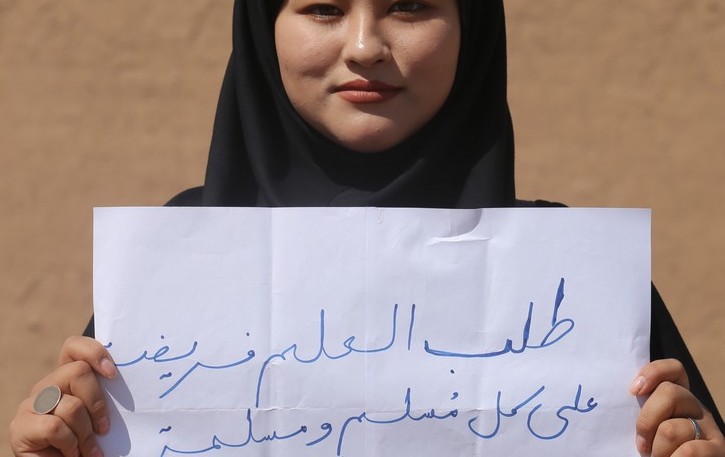 طلب العلم فريضة
على كل مُسلم ومسلمة